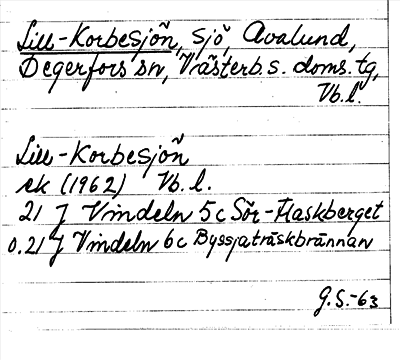 Lill-Korbesjön, sjö, Avalund,
Degerfors sn, Västerb.s. doms. tg,
Vb.l.
Lill-Korbesjön
ek (1962) Vb. l.
21 J Vindeln 5c Sör-Haskberget
0.21 J Vindeln 6c Byssjaträskbrännan
G.S.-63